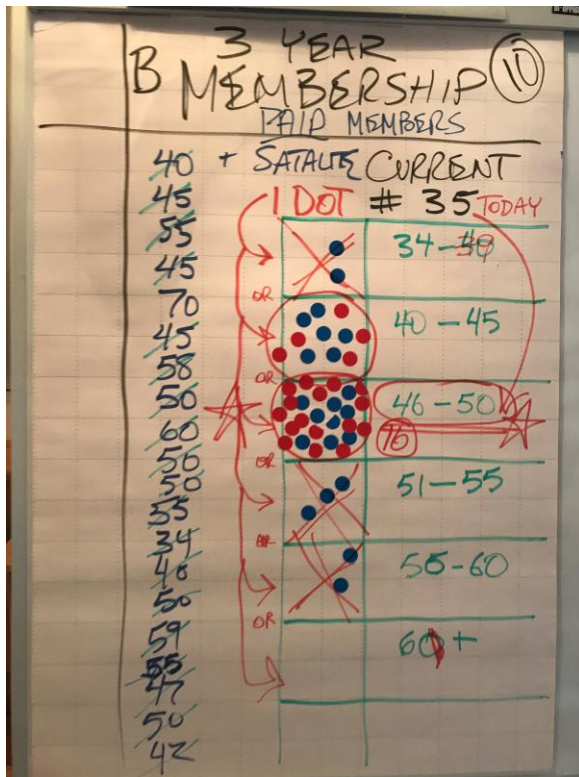 B 3 YEAR
MEMBERSHIP 10
PAID MEMBERS
+ SATALITE CURRENT
1 DOT # 35 TODAY
40
45
55
45
70
45
58
50
60
50
50
55
34
48
50
59
55
47
50
42
OR
OR
OR
OR
OR
34 - 39
40 - 45
46 - 50
51 - 55
56 - 60
60 +